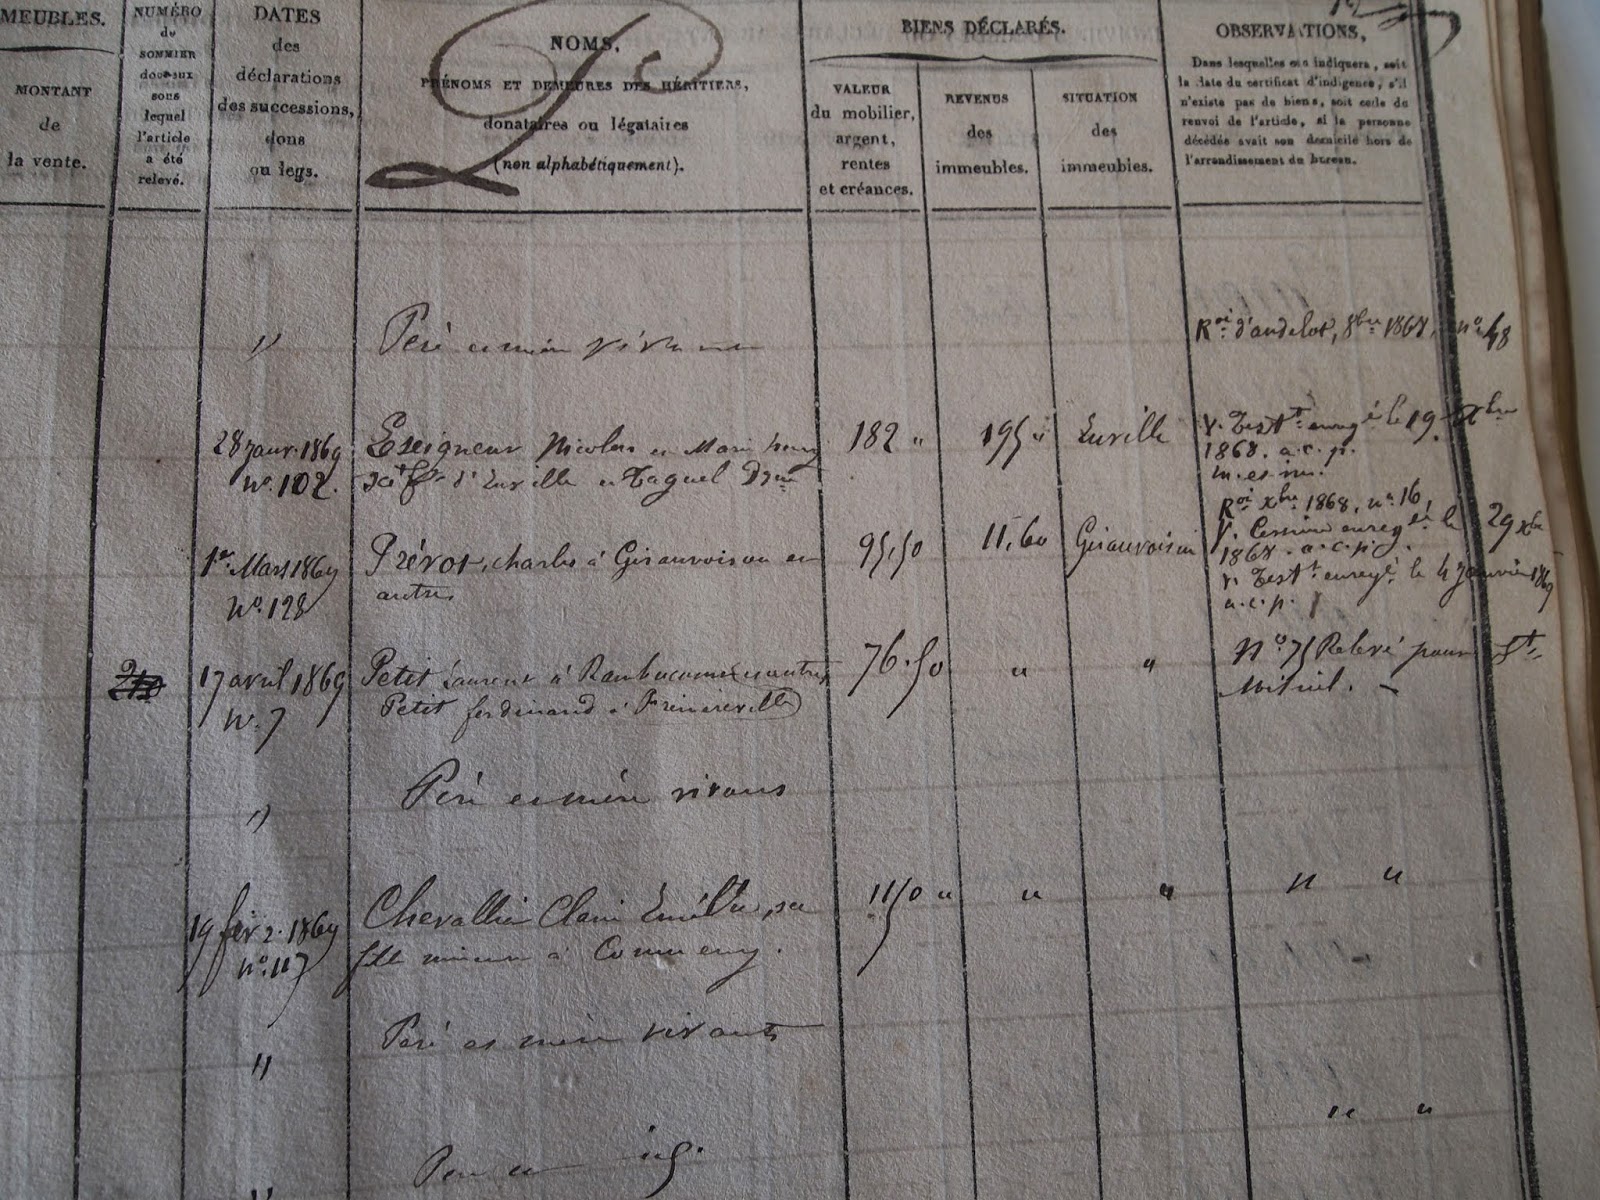 MEUBLES.
MONTANT
de
la vente.
NUMÉRO
du
SOMMIER
douteux
sous
lequel
l'article
a été
relevé.
DATES
des
déclarations
des successions,
dons
ou legs.
NOMS,
PRÉNOMS ET DEMEURES DES HÉRITIERS,
donataires ou légataires
(non alphabétiquement).
BIENS DÉCLARÉS.
VALEUR
du mobilier,
argent,
rentes
et créances.
REVENUS
des
immeubles.
SITUATION
des
immeubles.
OBSERVATIONS,
Dans lesquelles on indiquera, soit
la date du certificat d'indigence, s'il
n'existe pas de biens, soit celle du
renvoi de l'article, si la personne
décédée avait son domicile hors de
l'arrondissement du bureau.
" Père et mère vivans Roi d'andelot, 8bre 1868, no 48
28 janv. 1869 Nicolas et Marie 182 " 195 " Euville V. Testt enregé le 19 Xbre
no. 102. d'Euville et 1868. a.c.p.
m. et im.
Roi Xbre 1868, no 16
1er Mars 1869 Prévot, charles à Girauvoisin et 95,50 11,60 Girauvoisin V. enregé le 29 Xbre
no. 128 autres 1868. a.c.p.
V. Testt enregé le 4 Janvier 1869
a.c.p.
17 avril 1869 Petit Laurent à 76.50 " " No 75 Relevé pour St.
no. 7 Petit ferdinand à Mihiel.
" Père et mère vivans
19 fév. 1869 Chevallier Claire , sa 1150 " " " " "
no. 117 fille mineure à Commercy.
" Père et mère vivants
" "
" Père et